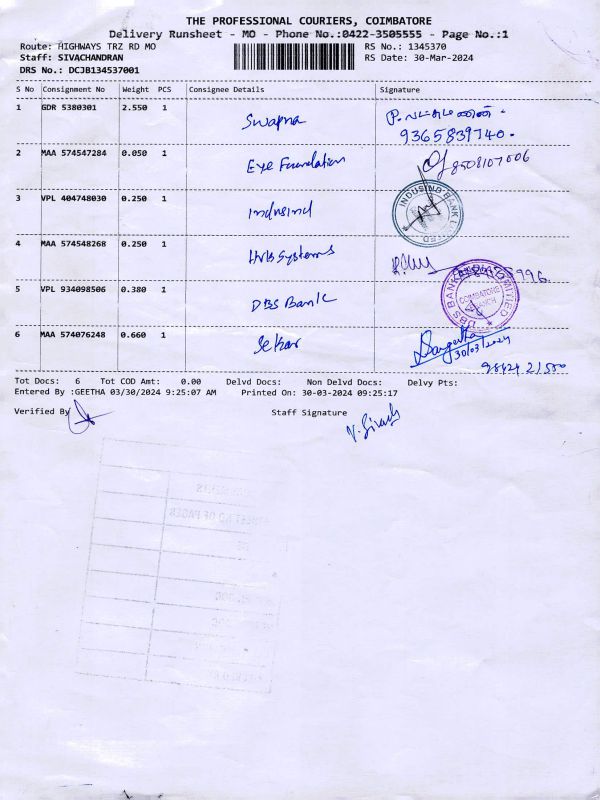 THE PROFESSIONAL COURIERS, COIMBATORE
Delivery Runsheet - MO - Phone No.:0422-3505555 - Page No.:1
Route: HIGHWAYS TRZ RD MO RS No.: 1345370
Staff: SIVACHANDRAN RS Date: 30-Mar-2024
DRS No.: DCJB134537001
S No Consignment No Weight PCS Consignee Details Signature
1 GDR 5380301 2.550 1 Swapna
9365839740.
2 MAA 574547284 0.050 1 Eye Foundation 8508107006
3 VPL 404748030 0.250 1 Indusind
INDUSIND BANK LIMITED
4 MAA 574548268 0.250 1 HVB Systems
5 VPL 934098506 0.380 1 DBS Bank
DBS BANK INDIA LIMITED
COIMBATORE
BRANCH
6 MAA 574076248 0.660 1 Sekar Sangeetha
30/03/2024
98424 21500
Tot Docs: 6 Tot COD Amt: 0.00 Delvd Docs: Non Delvd Docs: Delvy Pts:
Entered By :GEETHA 03/30/2024 9:25:07 AM Printed On: 30-03-2024 09:25:17
Verified By Staff Signature
V. Sivach